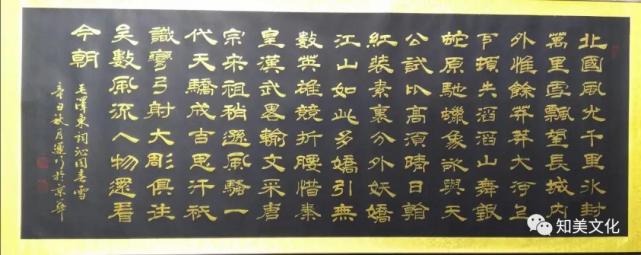 北國風光千里冰封
萬里雪飄望長城內
外惟餘莽莽大河上
下頓失滔滔山舞銀
蛇原馳蠟象欲與天
公試比高須晴日看
紅裝素裹分外妖嬌
江山如此多嬌引無
數英雄競折腰惜秦
皇漢武畧輸文采唐
宗宋祖稍遜風騷一
代天驕成吉思汗衹
識彎弓射大彫俱往
矣數風流人物還看
今朝
毛澤東詞沁園春雪
辛丑月於京華
知美文化